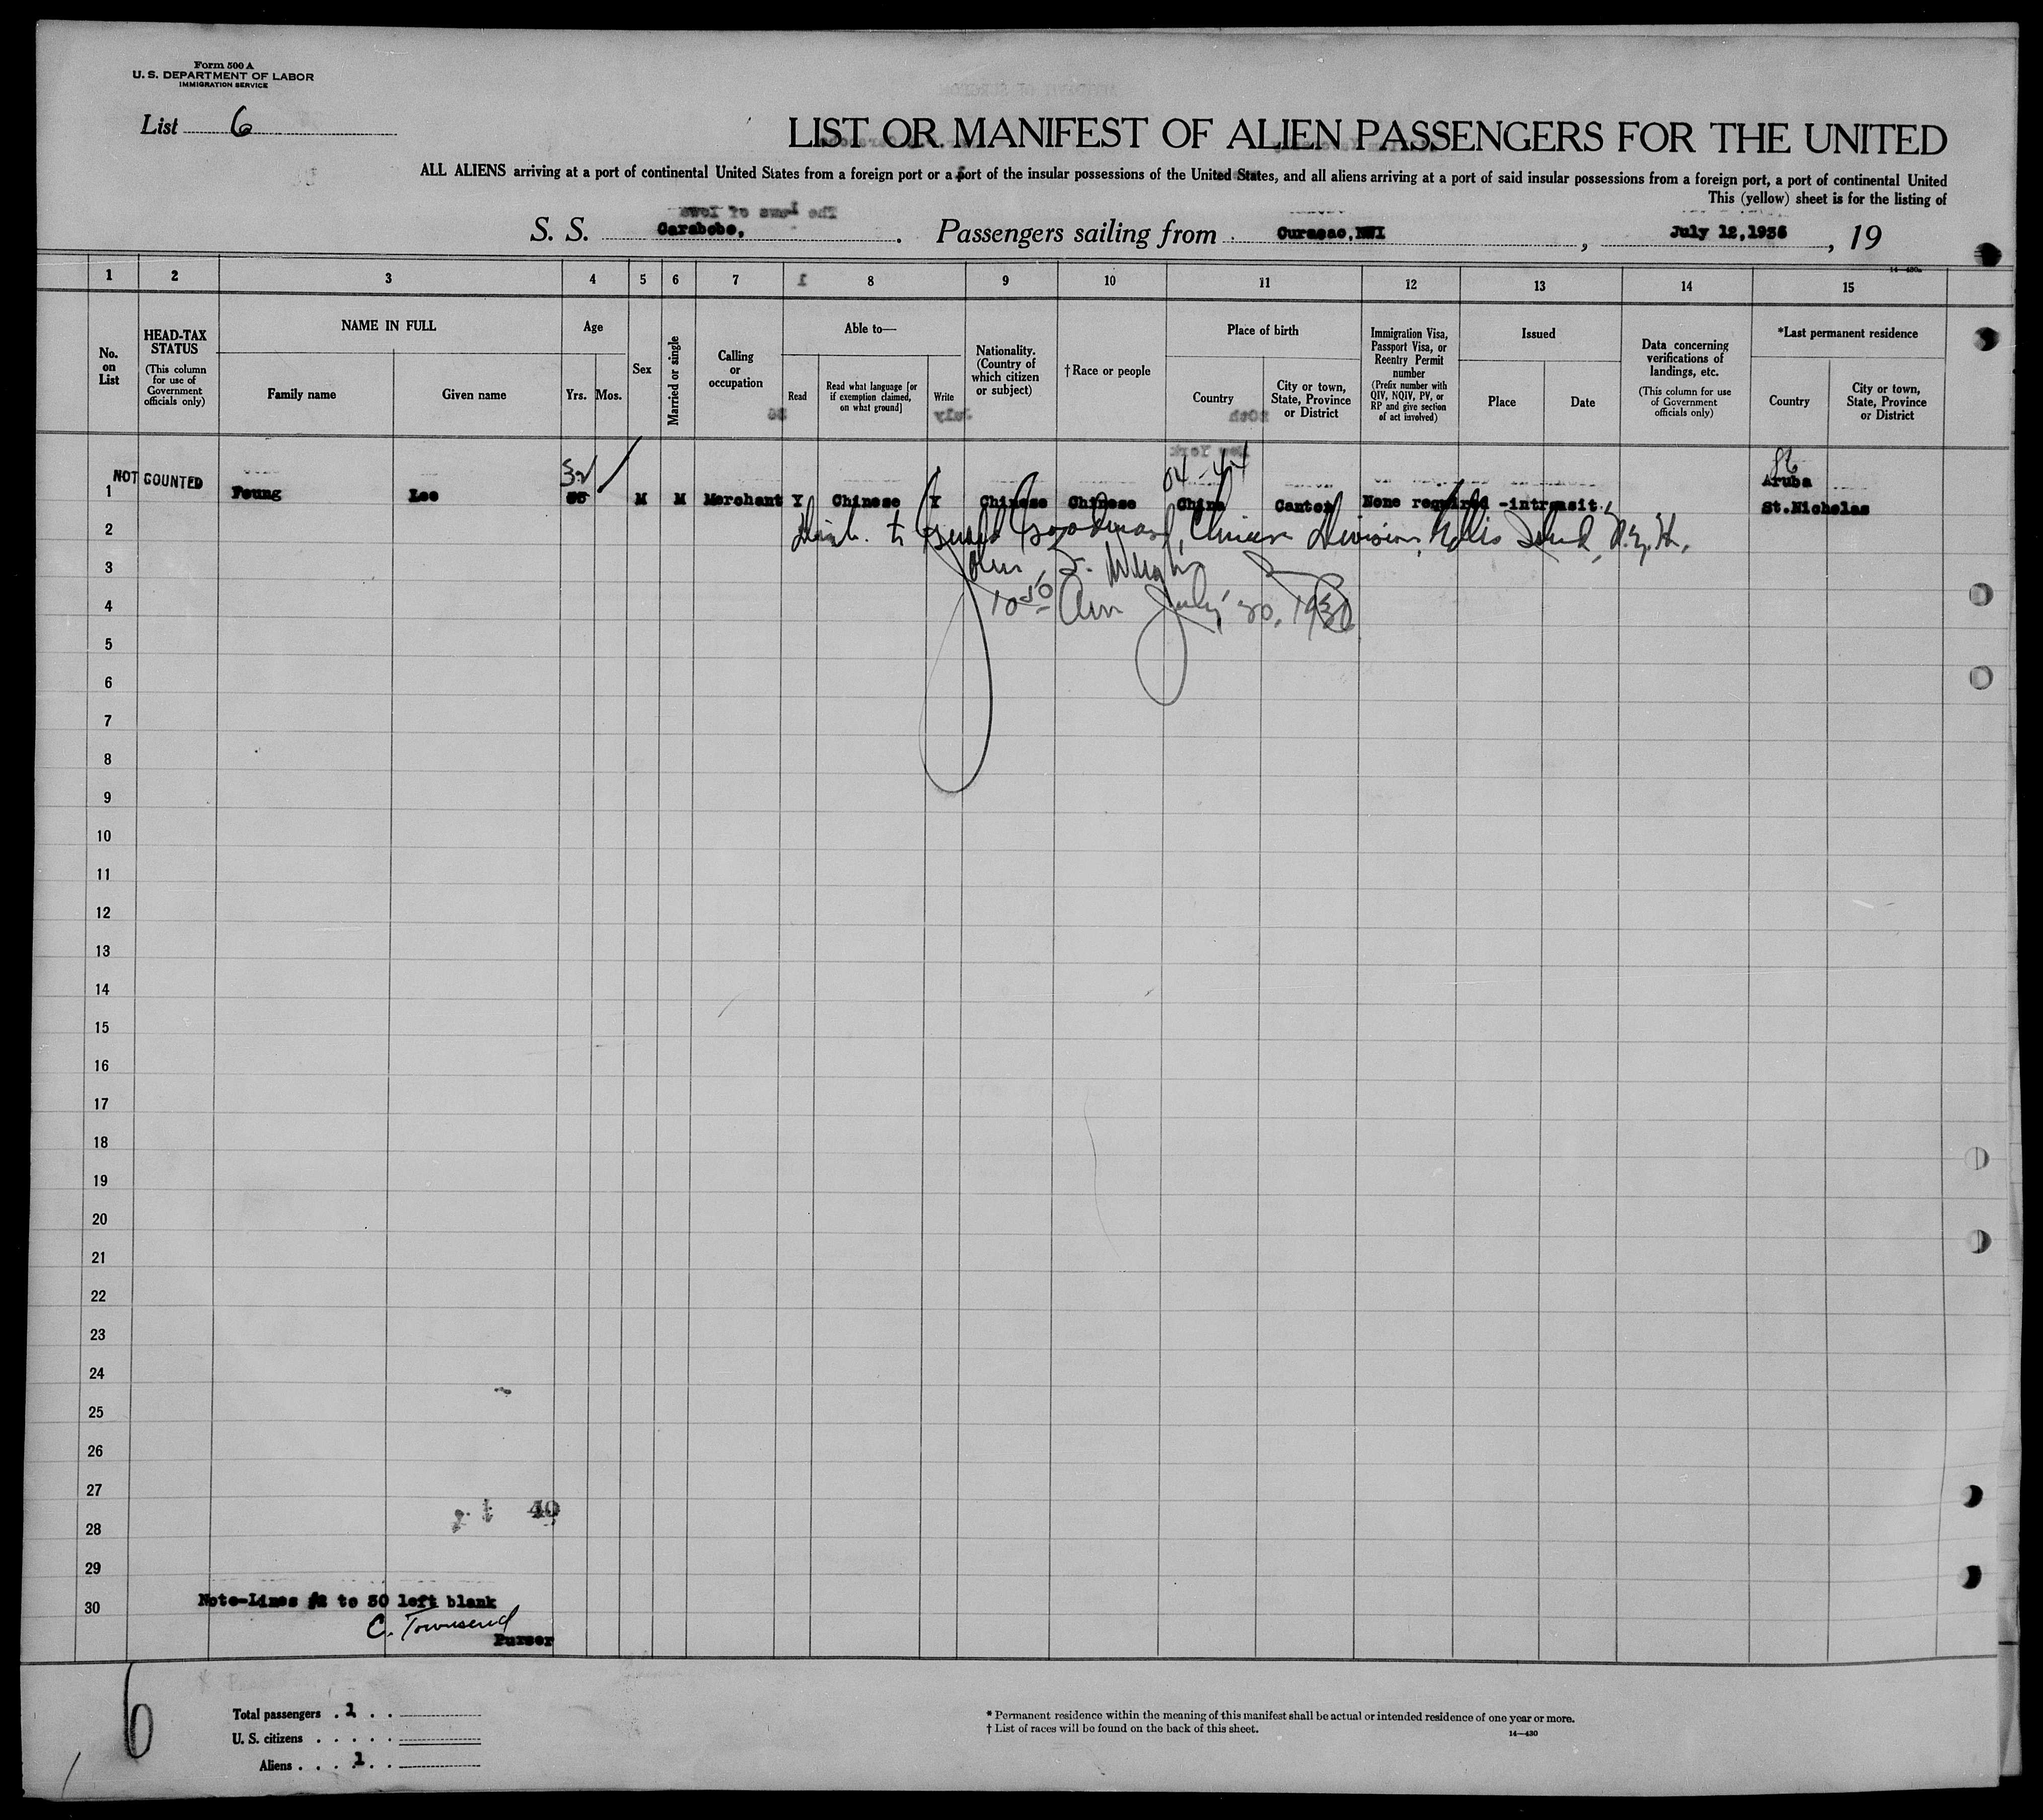 Form 500 A
U. S. DEPARTMENT OF LABOR
IMMIGRATION SERVICE
List 6
LIST OR MANIFEST OF ALIEN PASSENGERS FOR THE UNITED
ALL ALIENS arriving at a port of continental United States from a foreign port or a port of the insular possessions of the United States, and all aliens arriving at a port of said insular possessions from a foreign port, a port of continental United
This (yellow) sheet is for the listing of
S. S. Carabobo, . Passengers sailing from Curacao,NWI , July 12,1936 , 19
14—430a
1 2 3 4 5 6 7 8 9 10 11 12 13 14 15
No. on List
HEAD-TAX STATUS (This column for use of Government officials only)
NAME IN FULL
Family name Given name
Age
Yrs. Mos.
Sex
Married or single
Calling or occupation
Able to—
Read Read what language [or if exemption claimed, on what ground] Write
Nationality. (Country of which citizen or subject)
† Race or people
Place of birth
Country City or town, State, Province or District
Immigration Visa, Passport Visa, or Reentry Permit number (Prefix number with QIV, NQIV, PV, or RP and give section of act involved)
Issued
Place Date
Data concerning verifications of landings, etc. (This column for use of Government officials only)
*Last permanent residence
Country City or town, State, Province or District
32 04-44
Aruba
1 NOT COUNTED Young Lee M M Merchant Y Chinese Y Chinese Chinese China Canton None required -intransit. St.Nicholas
2 to Chinese Division, Ellis Island, N.Y.H.
3 John
4 10 50 Am July 20, 1936
5
6
7
8
9
10
11
12
13
14
15
16
17
18
19
20
21
22
23
24
25
26
27
40
28
29
Note-Lines #2 to 30 left blank
30
C. Townsend
Purser
6
Total passengers . 1 . .
U. S. citizens . . . . .
Aliens . . . 1 . .
* Permanent residence within the meaning of this manifest shall be actual or intended residence of one year or more.
† List of races will be found on the back of this sheet.
14—430